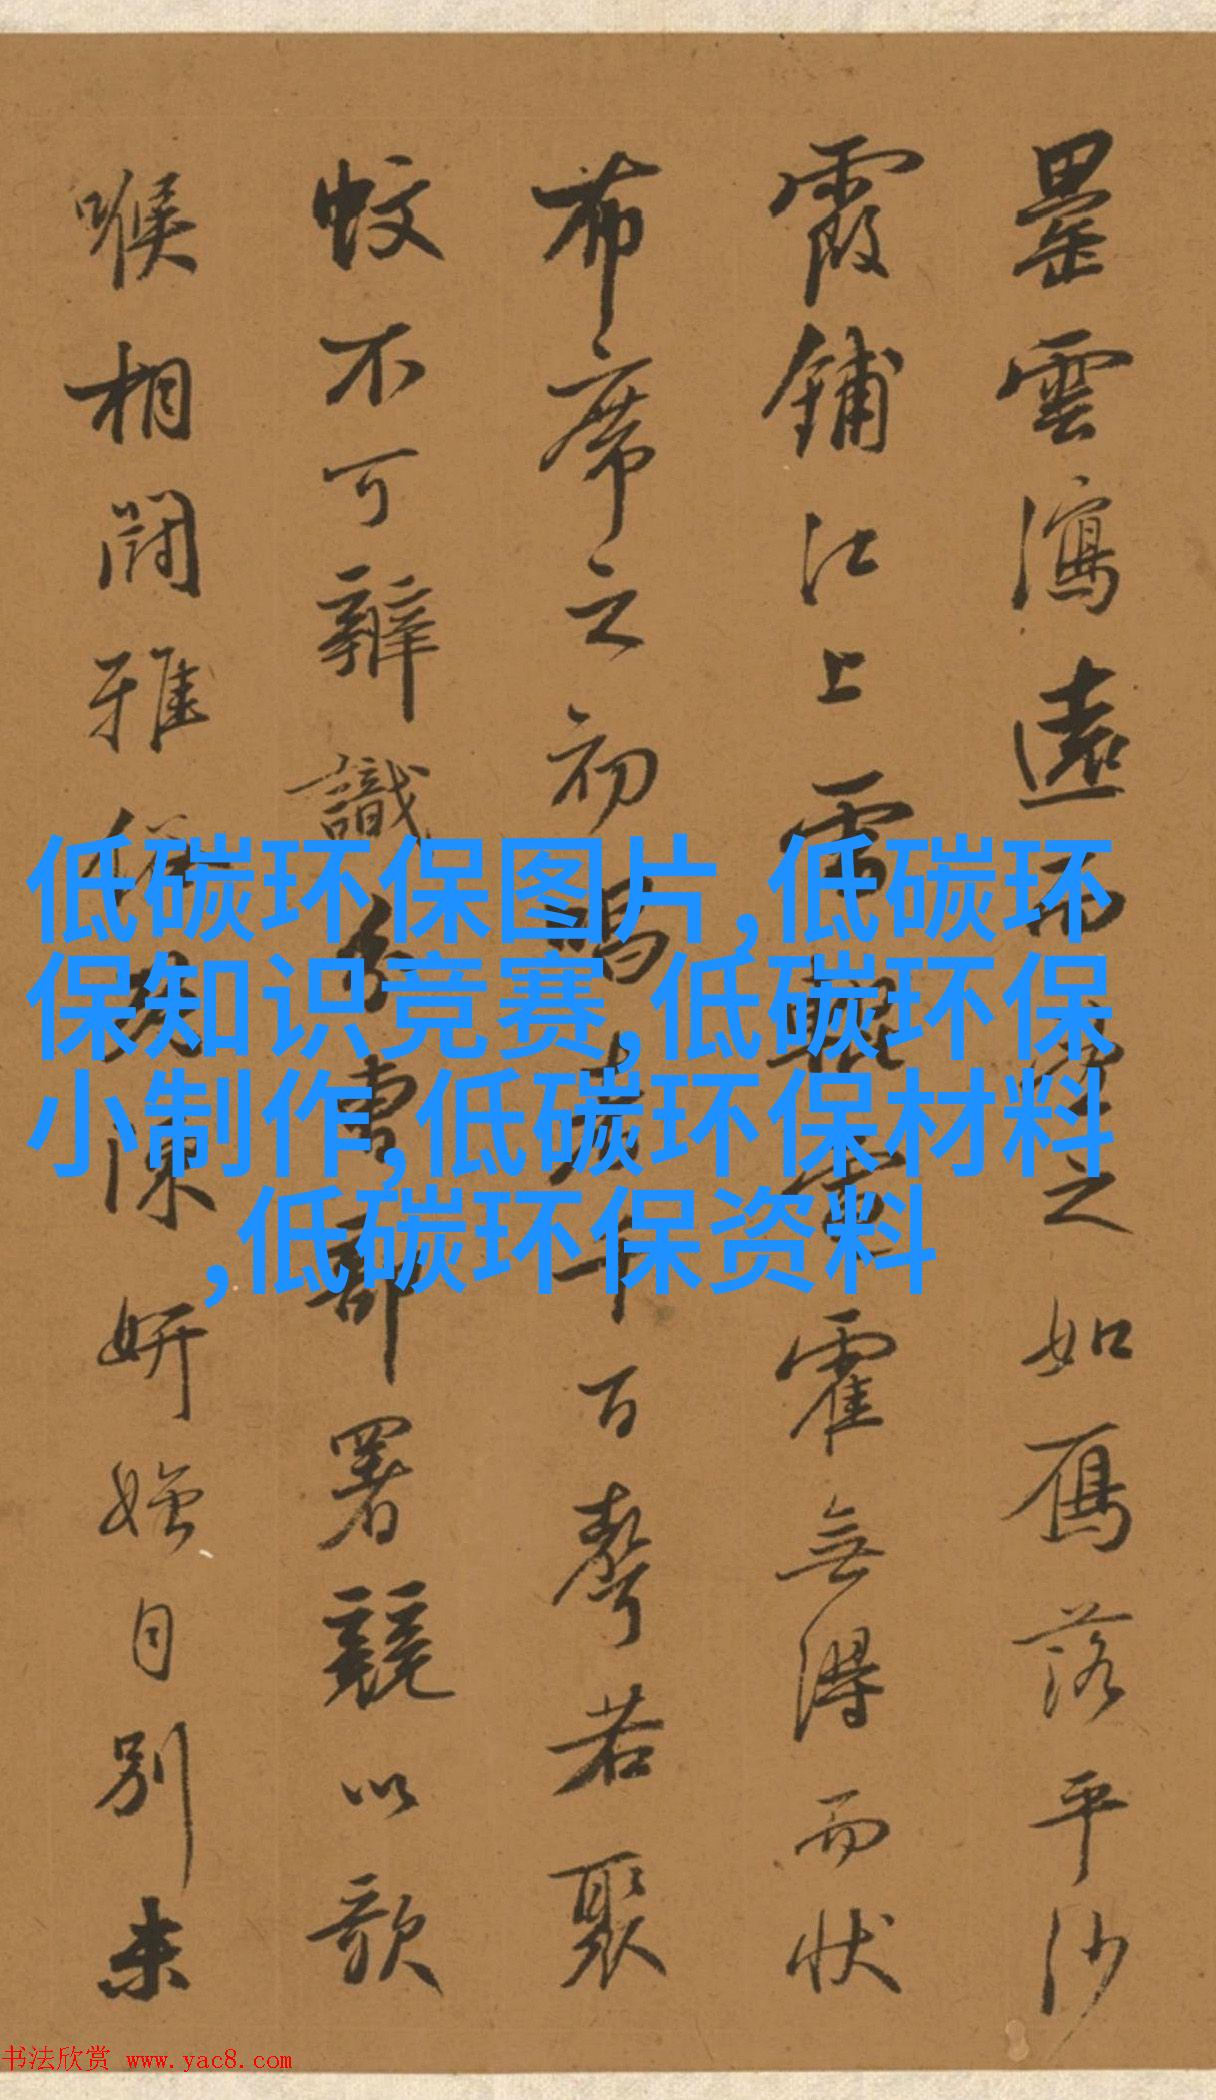 罍雲瀉遠而望之如鴈落平沙
霞鋪江上雷輥電霍無得而狀
布席之初唱者千百聲若聚
蚊不可辨識分曹部署競以歌
喉相鬪雅俗既陳妍媸自別未
低碳环保图片,低碳环
保知识竞赛,低碳环保
小制作,低碳环保材料
,低碳环保资料
书法欣赏 www.yac8.com